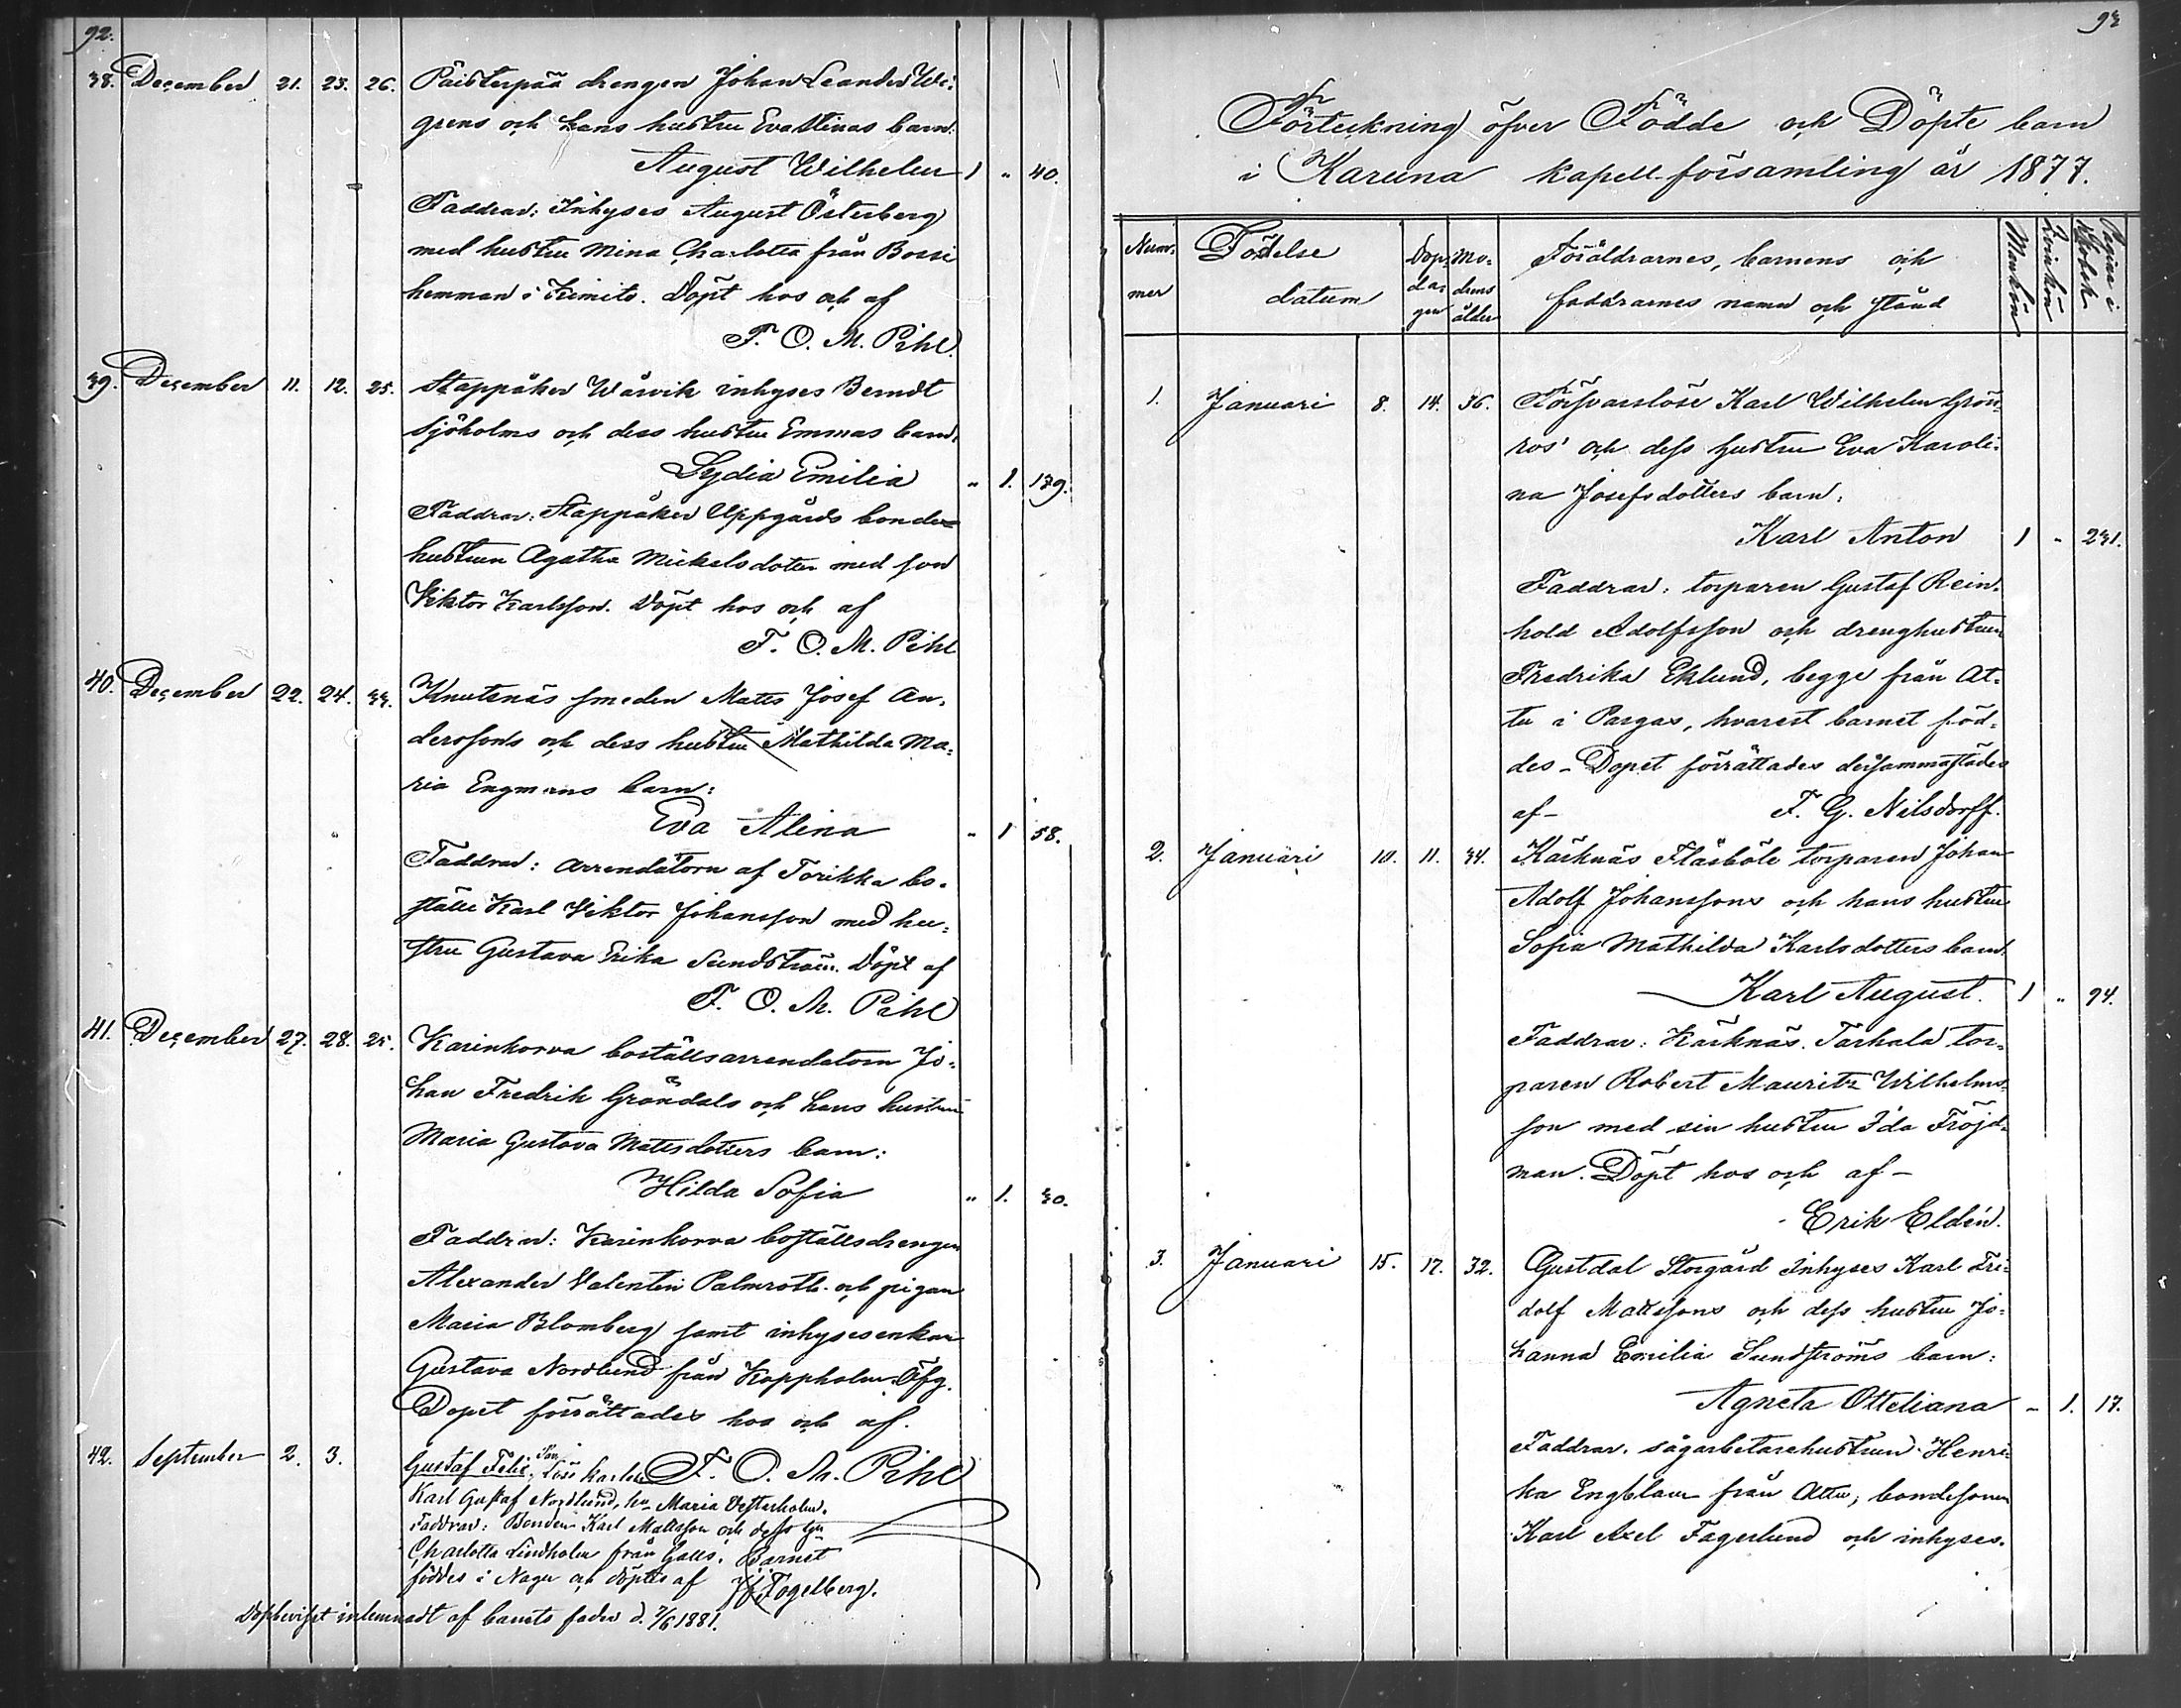 92.
38. December 21. 23. 26. Päisterpää drengen Johan Leander Wi-
grens och hans hustru Eva Stinas barn:
August Wilhelm 1 " 40.
Faddrar: Inhyses August Österberg
med hustru Mina Charlotta från Bossi
hemman i Kimito. Döpt hos och af
F. O. M. Pihl.
39. December 11. 12. 25. Stappåker Wårvik inhyses Berndt
Sjöholms och dess hustru Emmas barn:
Lydia Emilia " 1. 179.
Faddrar: Stappåker Uppgårds bonde-
hustrun Agatha Mickelsdotter med son
Viktor Karlsson. Döpt hos och af
F. O. M. Pihl
40. December 22. 24. 33. Knutsnäs smeden Matts Josef An-
derssons och dess hustru Mathilda Ma-
ria Engmans barn:
Eva Alina " 1 58.
Faddrar: arrendatorn af Torikka bo-
ställe Karl Viktor Johansson med hu-
stru Gustava Erika Sundström. Döpt af
F. O. M. Pihl
41. December 27. 28. 25. Karinkorva boställsarrendatorn Jo-
han Fredrik Gröndals och hans hustru
Maria Gustava Mattsdotters barn:
Hilda Sofia " 1. 30.
Faddrar: Karinkorva boställsdrengen
Alexander Valentin Palmroth och pigan
Maria Blomberg samt inhysesenkan
Gustava Nordlund från Koppholm Öfg.
Dopet förrättades hos och af.
F. O. M. Pihl
42. September 2. 3. Gustaf Felix, Son, Löse karlen
Karl Gustaf Nordlund, hu Maria Vesterholm.
Faddrar: Bonden Karl Mattsson och dess hu
Charlotta Lindholm från Galts. Barnet
föddes i Nagu och döptes af Fogelberg.
Dopbeviset inlemnadt af barnets fader d. 7/6 1881.
93
Förteckning öfver Födde och Döpte barn
i Karuna kapell-församling år 1877.
Num-
mer
Födelse
datum
Dop-
da-
gen
Mo-
drens
ålder
Föräldrarnes, barnens och
faddrarnes namn och stånd
Mankön
Qvinkön
Pagina i
1. Januari 8. 14. 36. Försvarslöse Karl Wilhelm Grön-
ros' och dess hustru Eva Karoli-
na Josefsdotters barn:
Karl Anton 1 " 231.
Faddrar: torparen Gustaf Rein-
hold Adolfsson och drenghustrun
Fredrika Eklund, begge från At-
tu i Pargas, hvarest barnet föd-
des – Dopet förrättades dersammastädes
af – F. G. Nilsdorff.
2. Januari 10. 11. 34. Kärknäs Fläsböle torparen Johan
Adolf Johanssons och hans hustru
Sofia Mathilda Karlsdotters barn:
Karl August. 1 " 94.
Faddrar: Kärknäs Tarhala tor-
paren Robert Mauritz Wilhelms-
son med sin hustru Ida Fröjd-
man. Döpt hos och af –
Erik Eldén.
3. Januari 15. 17. 32. Gustdal Storgård Inhyses Karl Fri-
dolf Mattssons och dess hustru Jo-
hanna Emilia Sundströms barn:
Agneta Otteliana " 1. 17.
Faddrar. sågarbetarehustrun Henri-
ka Engblom från Attu, bondesonen
Karl Axel Fagerlund och inhyses-